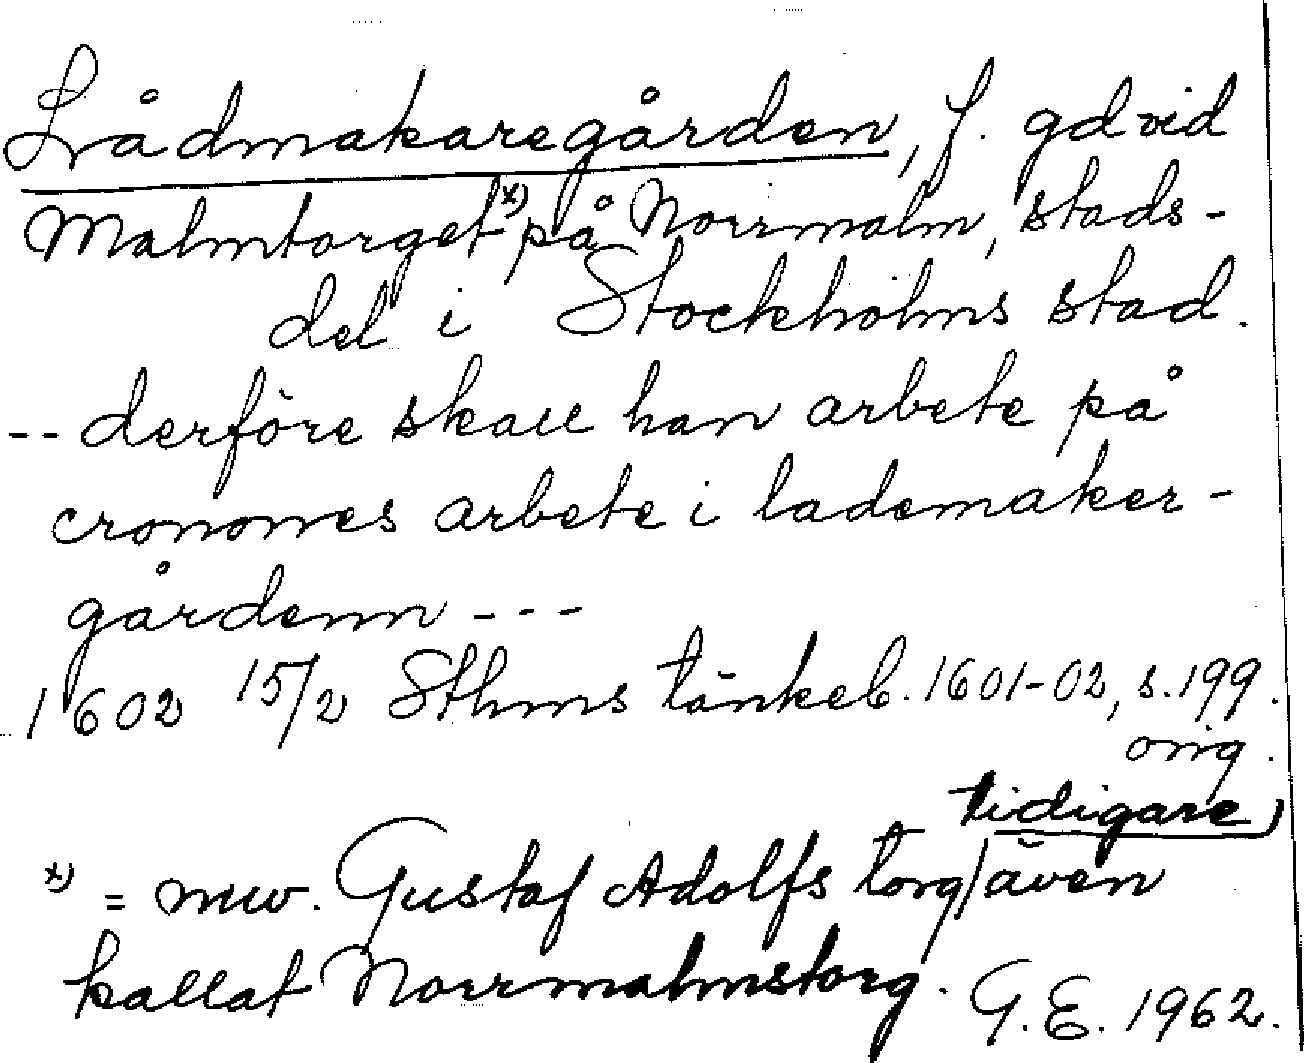 Lådmakaregården, f. gd vid
Malmtorget x) på Norrmalm, stads-
del i Stockholms stad.
-- derföre skall han arbete på
cronones arbete i lademaker-
gårdenn ---
1602 15/2 Sthms tänkeb. 1601-02, s. 199.
orig.
tidigare,
x) = nuv. Gustaf Adolfs torg, även
kallat Norrmalmstorg. G.E. 1962.